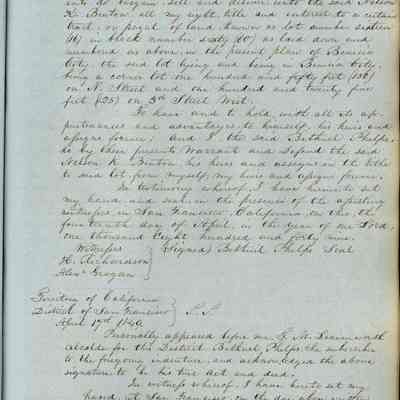 do bargain, sell and deliver unto the said Nelson
K. Benton, all my right, title and interest to a certain
tract, or parcel of land, known as lot number sixteen
(16) in block number sixty (60) as laid down and
numbered as above, in the present plan of Benicia
City, the said lot lying and being in Benicia City,
being a corner lot one hundred and fifty feet (150)
on N. Street and one hundred and twenty five
feet (125) on 5th Street West.
To have and to hold, with all its ap-
purtenances and advantages to himself, his heirs and
assigns forever. And I the said Bethuel Phelps,
do by these presents Warrant and Defend the said
Nelson K. Benton his heirs and assigns in the title
to said lot, from myself, my heirs and assigns forever.
In testimony whereof, I have hereunto set
my hand, and seal in the presence of the attesting
witnesses, in San Francisco, California, on this, the
fourteenth day of April, in the year of our Lord,
one thousand eight hundred and forty nine.
Witnesses (Signed) Bethuel Phelps Seal
H. Richardson
Alexr Grogan
Territory of California
District of San Francisco S.S.
April 17th 1849
Personally appeared before me
Alcalde for this District Bethuel Phelps, the subscriber
to the foregoing indenture, and acknowledged the above
signature to be his true act and deed.
In witness whereof, I have hereto set my
hand, at San Francisco, on the day above written